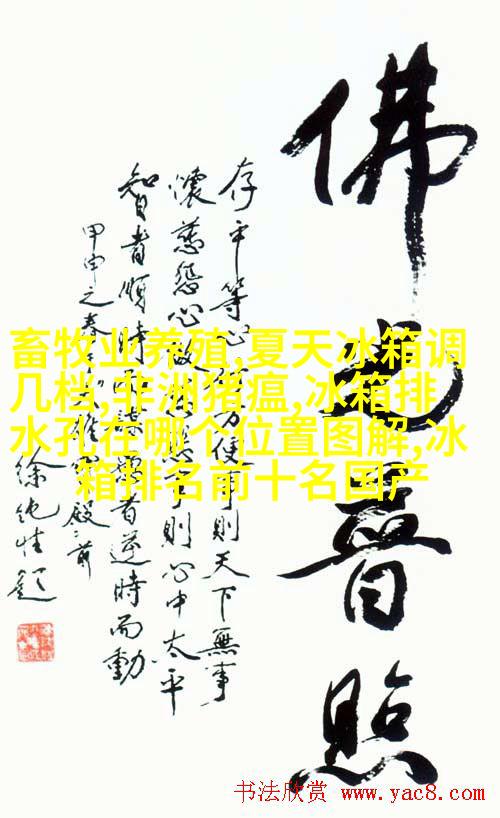 佛光普照
存平等心行方便事則天下無事
懷慈悲心做慈悲事則心中太平
智者順時而謀愚者逆時而動
甲申之春
殿之前
徐純性題
畜牧业养殖,夏天冰箱调
几档,非洲猪瘟,冰箱排
水孔在哪个位置图解,冰
箱排名前十名国产
书法欣赏 www.yac8.com